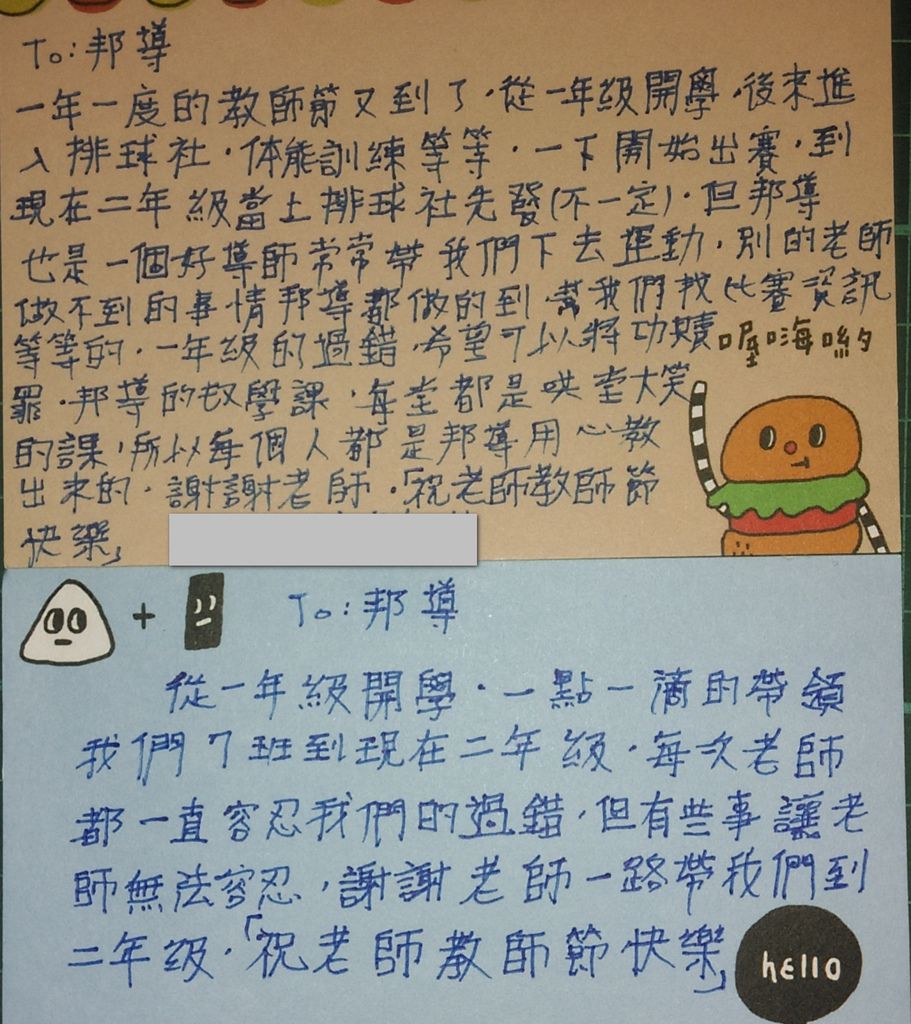 To:邦導
一年一度的教師節又到了,從一年級開學,後來進
入排球社,体能訓練等等,一下開始出賽,到
現在二年級當上排球社先發(不一定),但邦導
也是一個好導師常常帶我們下去運動,別的老師
做不到的事情邦導都做的到,幫我們找比賽資訊
等等的,一年級的過錯,希望可以將功贖
喔嗨喲
罪,邦導的教學課,每堂都是哄堂大笑
的課,所以每個人都是邦導用心教
出來的,謝謝老師,「祝老師教師節
快樂」
+
To:邦導
從一年級開學,一點一滴的帶領
我們7班到現在二年級,每次老師
都一直容忍我們的過錯,但有些事讓老
師無法容忍,謝謝老師一路帶我們到
二年級,「祝老師教師節快樂」
hello